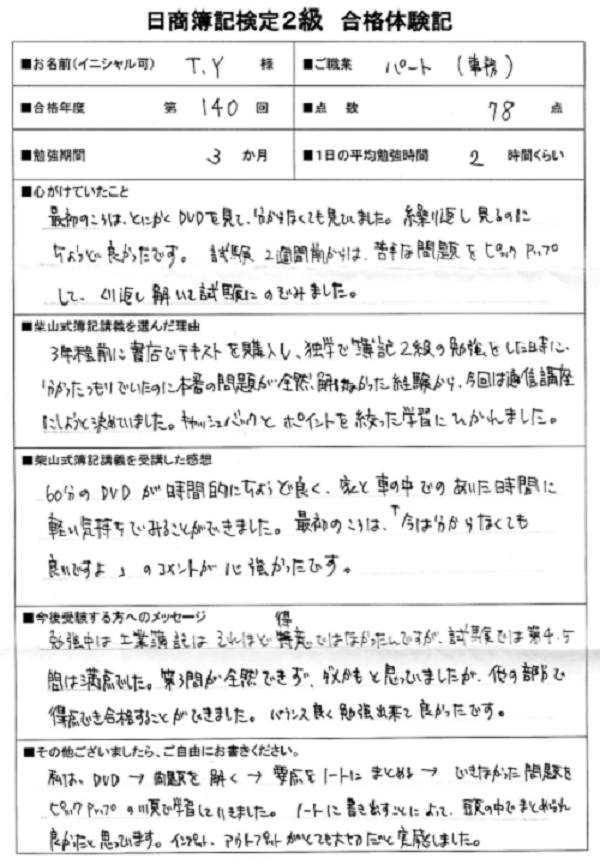 日商簿記検定2級 合格体験記
■お名前(イニシャル可) T.Y 様 ■ご職業 パート (事務)
■合格年度 第 140 回 ■点 数 78 点
■勉強期間 3 か月 ■1日の平均勉強時間 2 時間くらい
■心がけていたこと
最初のころは、とにかくDVDを見て、分からなくても見ていました。繰り返し見るのに
ちょうど良かったです。 試験 2週間前からは、苦手な問題をピックアップ
して、くり返し解いて試験にのぞみました。
■柴山式簿記講義を選んだ理由
3年程前に書店でテキストを購入し、独学で簿記2級の勉強をした時に、
分かったつもりでいたのに本番の問題が全然解けなかった経験から、今回は通信講座
にしようと決めていました。キャッシュバックとポイントを絞った学習にひかれました。
■柴山式簿記講義を受講した感想
60分のDVDが時間的にちょうど良く、家と車の中でのあいた時間に
軽い気持ちでみることができました。最初のころは、「今は分からなくても
良いですよ」のコメントが心強かったです。
■今後受験する方へのメッセージ
勉強中は工業簿記はそれほど得意ではなかったんですが、試験では第4.5
問は満点でした。第3問が全然できず、ダメかもと思っていましたが、他の部分で
得点でき合格することができました。バランス良く勉強出来て良かったです。
■その他ございましたら、ご自由にお書きください。
私は、DVD → 問題を解く → 要点をノートにまとめる → できなかった問題を
ピックアップの順で学習していきました。 ノートに書き出すことによって、頭の中でまとめられ
良かったと思っています。インプット、アウトプットがとても大切だと実感しました。